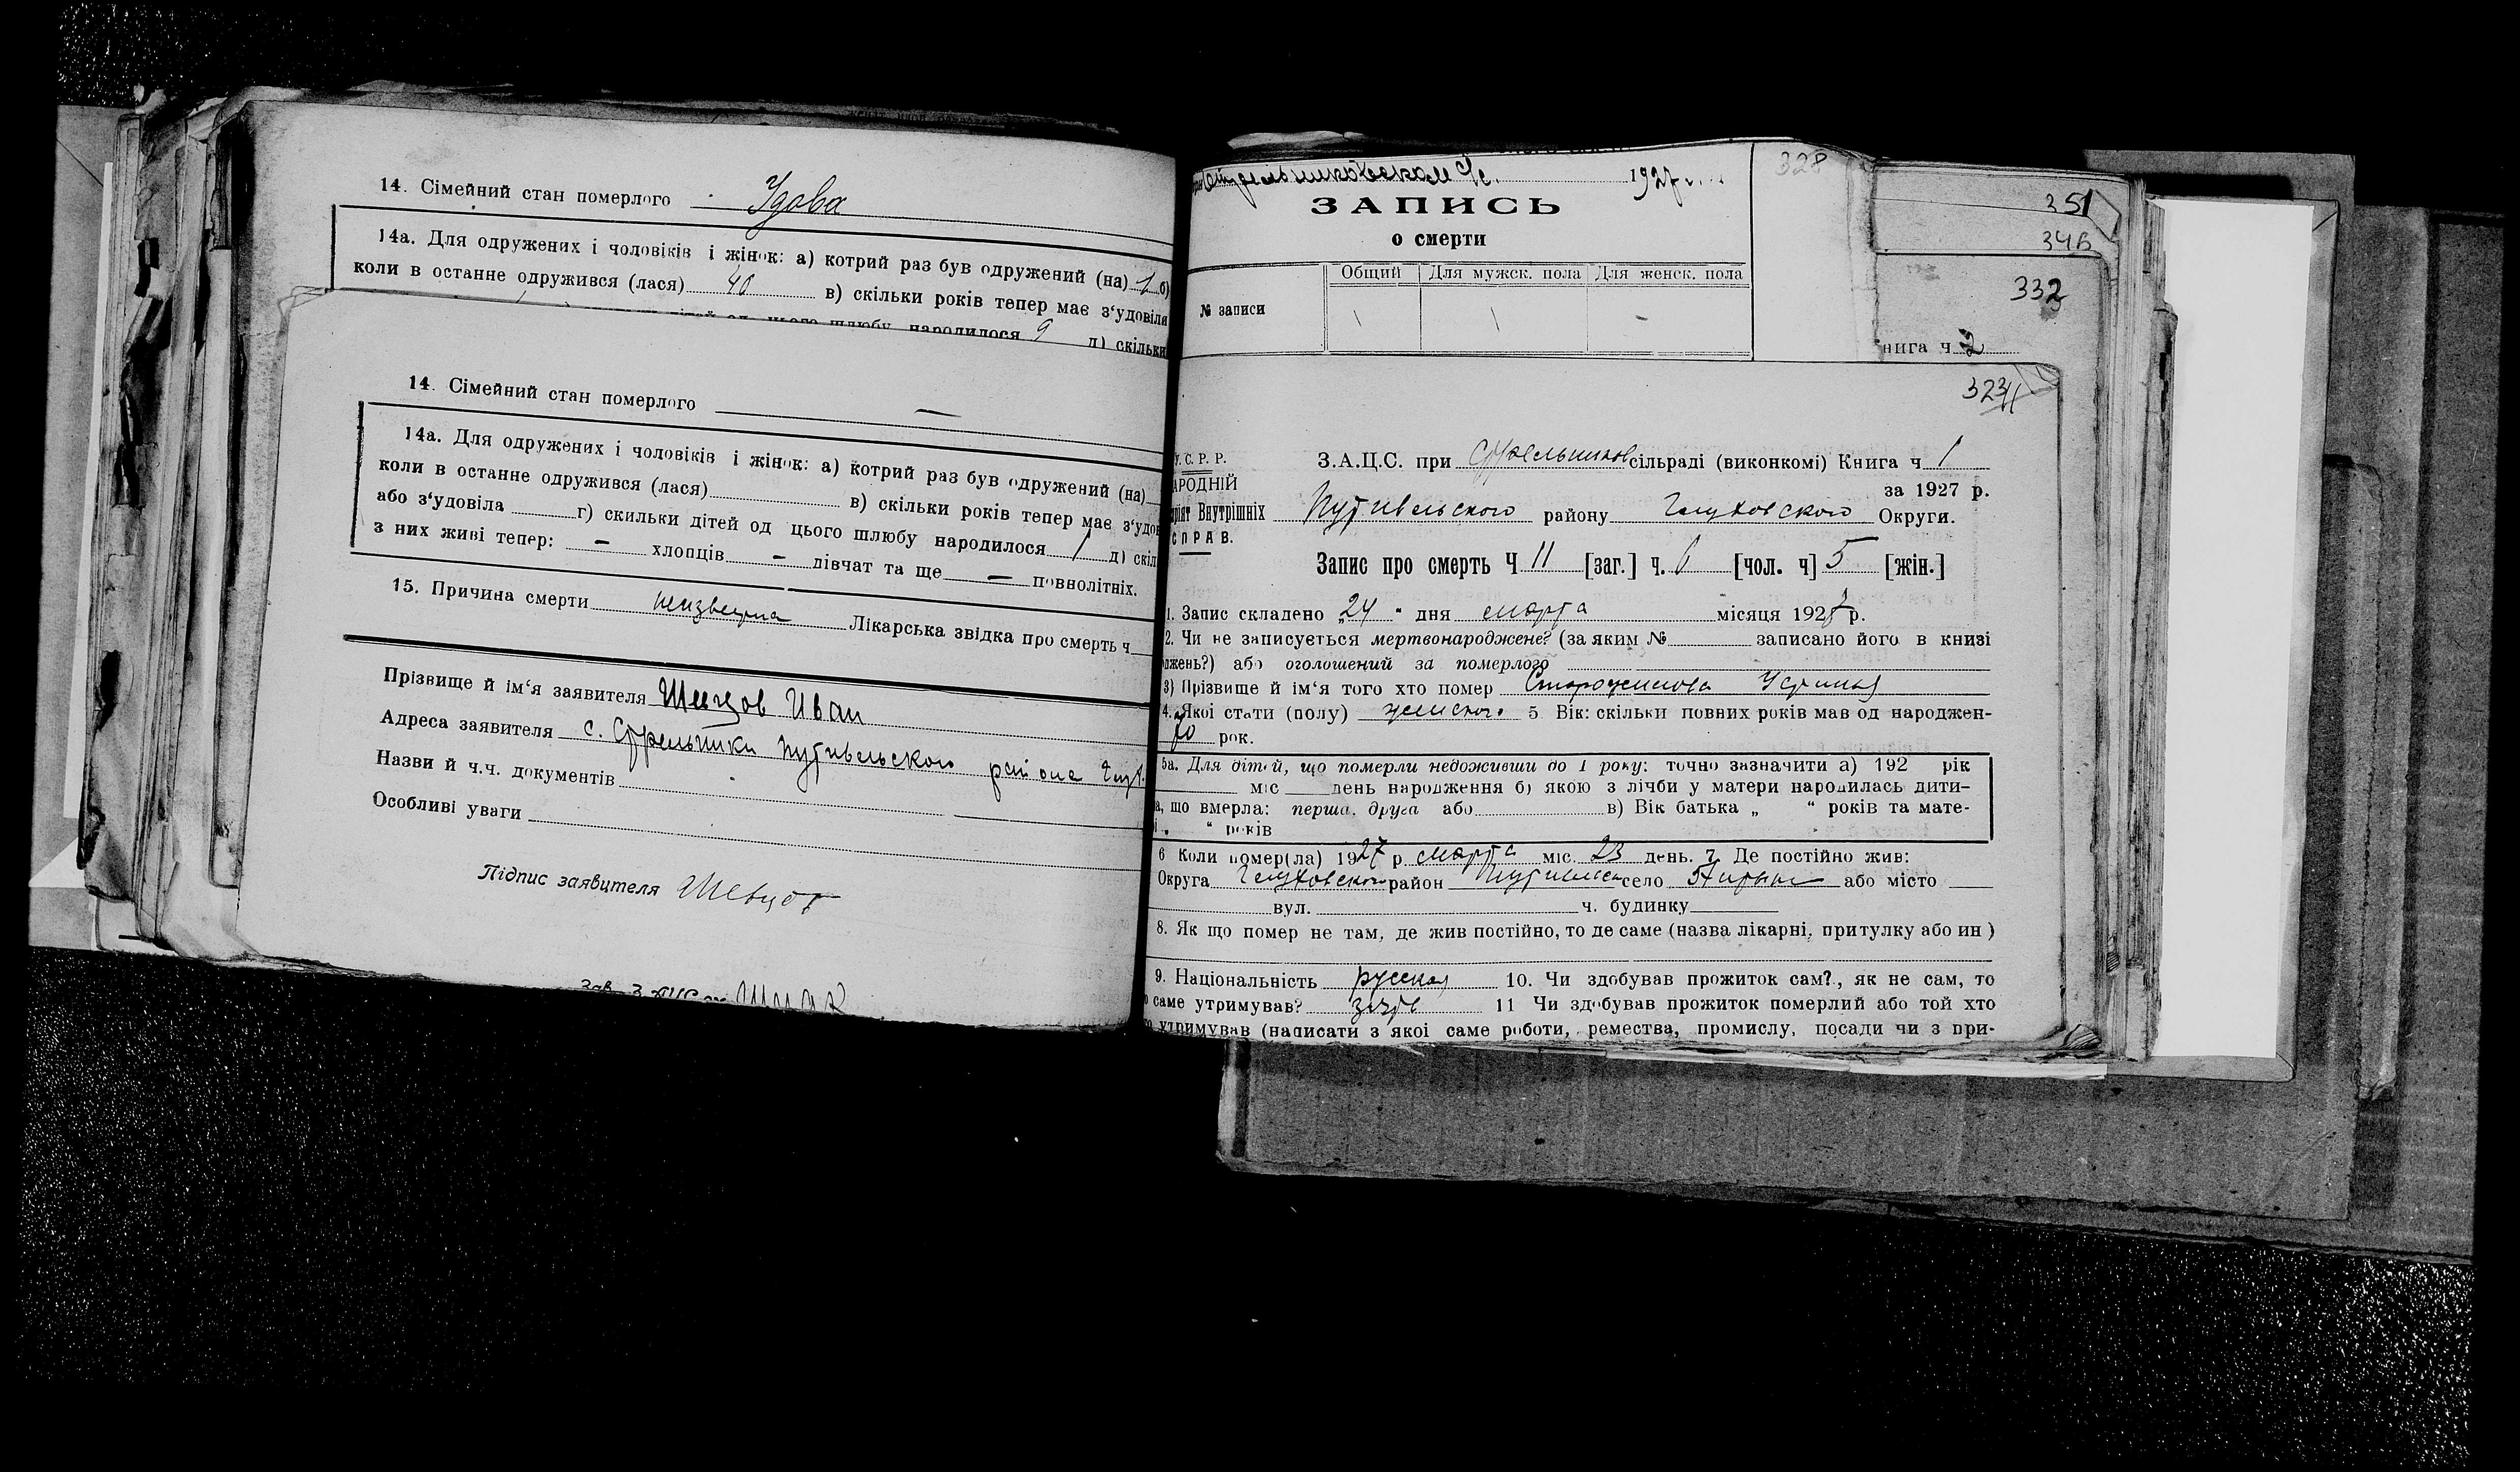 14. Сімейний стан померлого Удова
14а. Для одружених і чоловіків і жінок: а) котрий раз був одружений (на) 1 б)
коли в останне одружився (лася) 40 в) скільки років тепер має з‘удовіла
цього шлюбу народилося 9 д) скільки
14. Сімейний стан померлого —
14а. Для одружених і чоловіків і жінок: а) котрий раз був одружений (на)
коли в останне одружився (лася) в) скільки років тепер має з‘удов
або з‘удовіла г) скильки дітей од цього шлюбу народилося 1 д) скіл
з них живі тепер: — хлопців — дівчат та ще — повнолітніх.
15. Причина смерти неизвестна Лікарська звідка про смерть ч
Прізвище й ім‘я заявителя Шевцов Иван
Адреса заявителя с. Стрельники Путивельского района
Назви й ч.ч. документів
Особливі уваги
Підпис заявителя Шевцов
Стрельниковском с/с. 1927 г.
328
ЗАПИСЬ
о смерти
Общий Для мужск. пола Для женск. пола
№ записи \ \ –
351
332
нига ч 2
323
У.С.Р.Р.
АРОДНІЙ
Внутрішніх
СПРАВ.
З.А.Ц.С. при Стрельников сільраді (виконкомі) Книга ч 1
за 1927 р.
Путивельского району Глуховского Округи.
Запис про смерть Ч 11 [заг.] ч. 6 [чол. ч] 5 [жін.]
1. Запис складено „24 “ дня марта місяця 1927 р.
2. Чи не записується мертвонароджене? (за яким № записано його в книзі
джень?) або оголошений за померлого
3) Прізвище й ім‘я того хто помер Устинья
4. Якої стати (полу) женского 5 Вік: скільки повних років мав од народжен-
70 рок.
5а. Для дітей, що померли недоживши до 1 року: точно зазначити а) 192 рік
міс день народження б) якою з лічби у матери народилась дити-
а, що вмерла: перша, друга або в) Вік батька „ “ років та мате-
і „ “ років
6 Коли помер(ла) 1927 р марта міс. 23 день. 7. Де постійно жив:
Округа Глуховского район село або місто
вул. ч. будинку
8. Як що помер не там, де жив постійно, то де саме (назва лікарні, притулку або ин )
9. Національність русская 10. Чи здобував прожиток сам?, як не сам, то
саме утримував? зять 11 Чи здобував прожиток померлий або той хто
утримував (написати з якої саме роботи, ремества, промислу, посади чи з при-